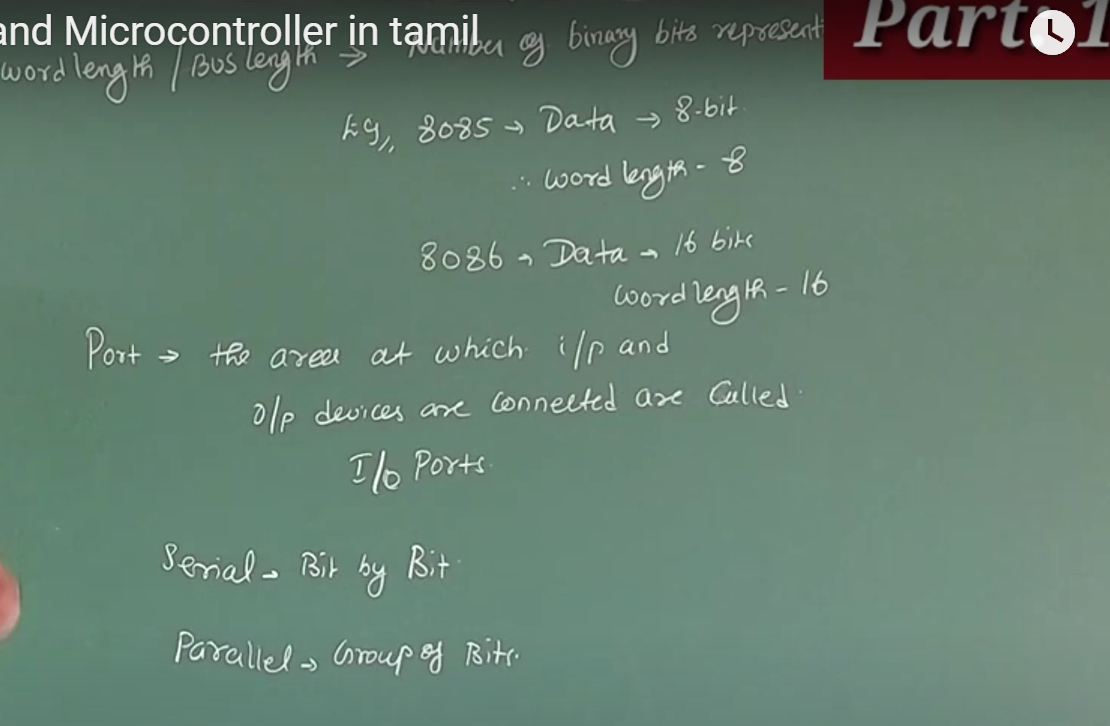 and Microcontroller in tamil
Part: 1
word length / Bus length → Number of binary bits represent
Eg,, 8085 → Data → 8-bit.
∴ word length - 8
8086 → Data → 16 bits
word length - 16
Port → the area at which i/p and
o/p devices are connected are Called.
I/O Ports.
Serial → Bit by Bit.
Parallel → Group of Bits.